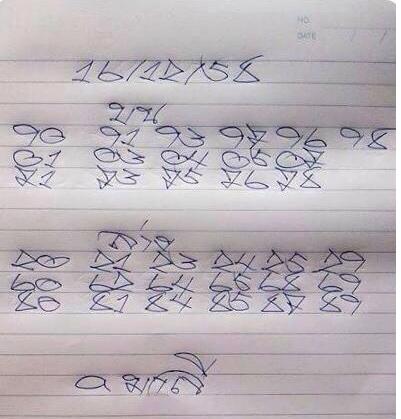 NO.
DATE / /
16/12/58
บน
90 91 93 97 96 98
01 03 04 05 07
71 73 75 76 78
ล่าง
20 21 23 24 25 29
60 67 64 65 68 69
80 81 84 85 87 89